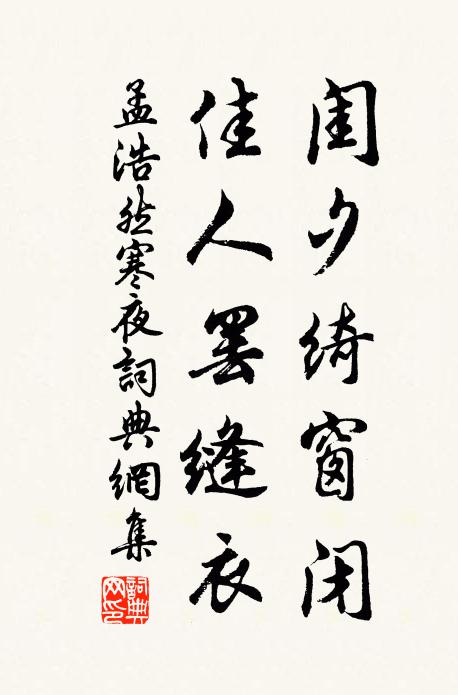 闺夕绮窗闭
佳人罢缝衣
孟浩然寒夜詞典網集
詞典网印